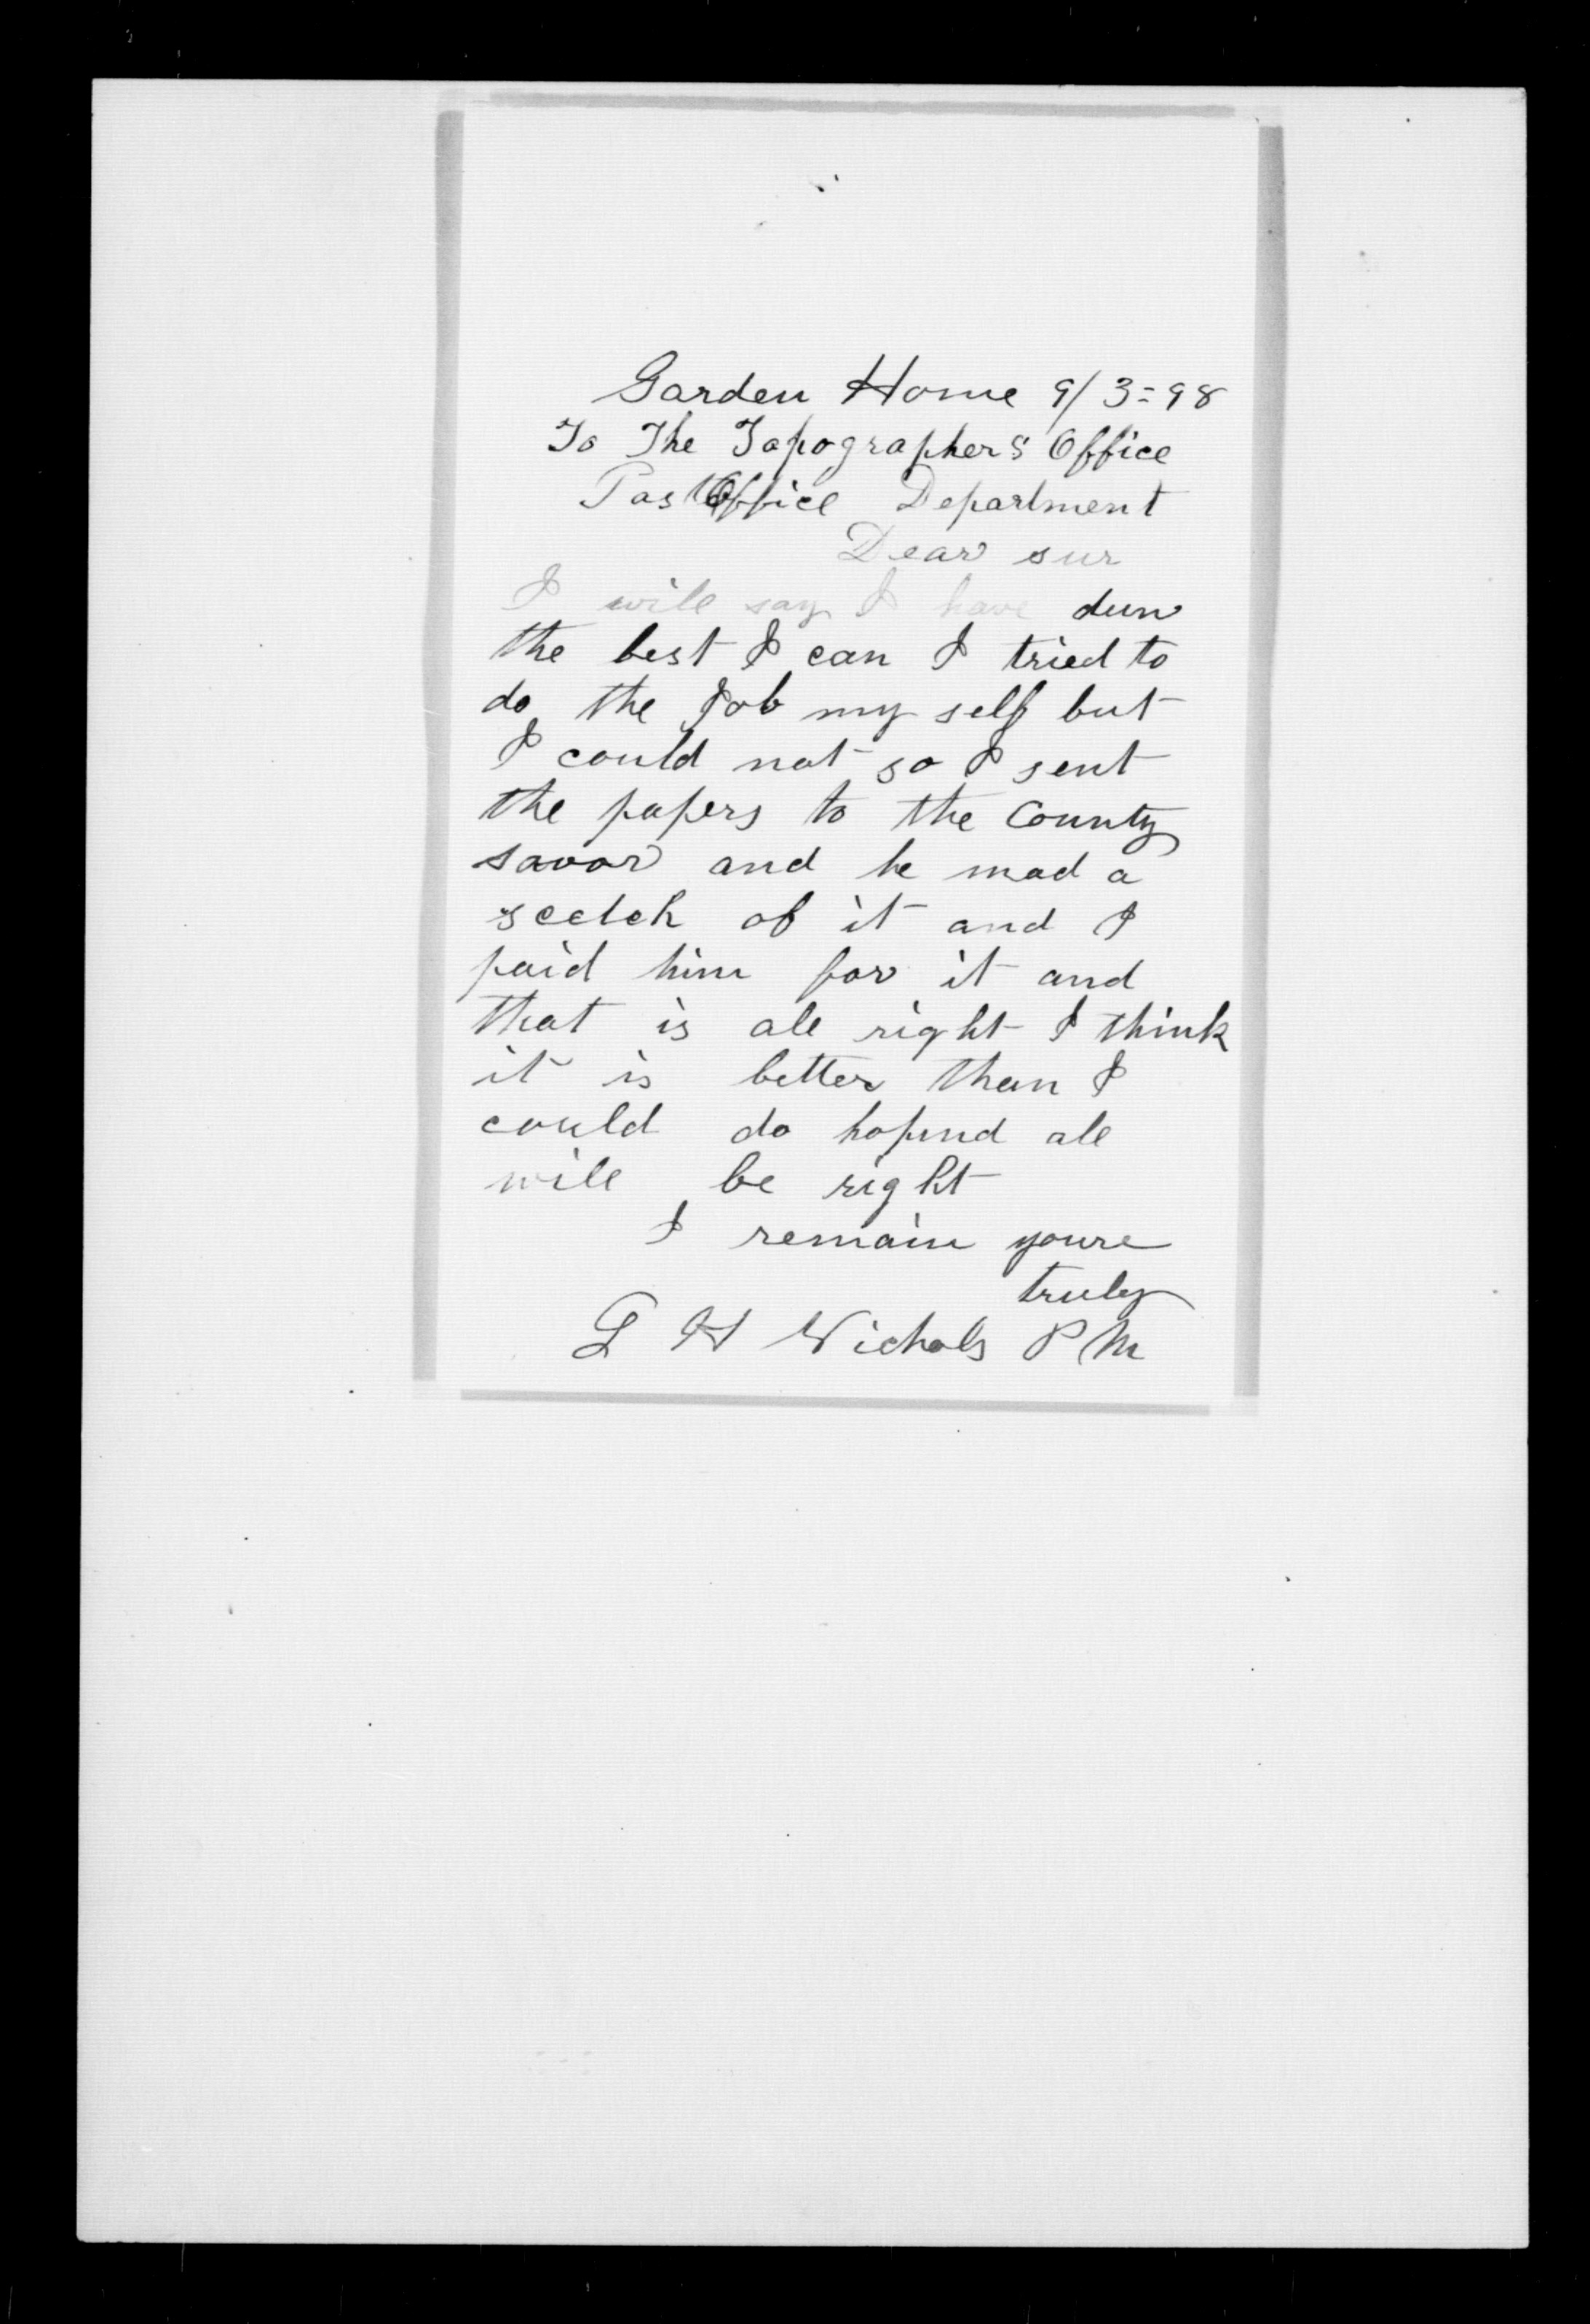 Garden Home 9/3=98
To The Topographer's Office
Post Office Department
Dear sur
I will say I have dun
the best I can I tried to
do the Job my self but
I could not so I sent
the papers to the County
savor and he mad a
scetch of it and I
paid him for it and
that is all right I think
it is better than I
could do hopind all
will be right
I remain youre
truly
L H Nichols P M